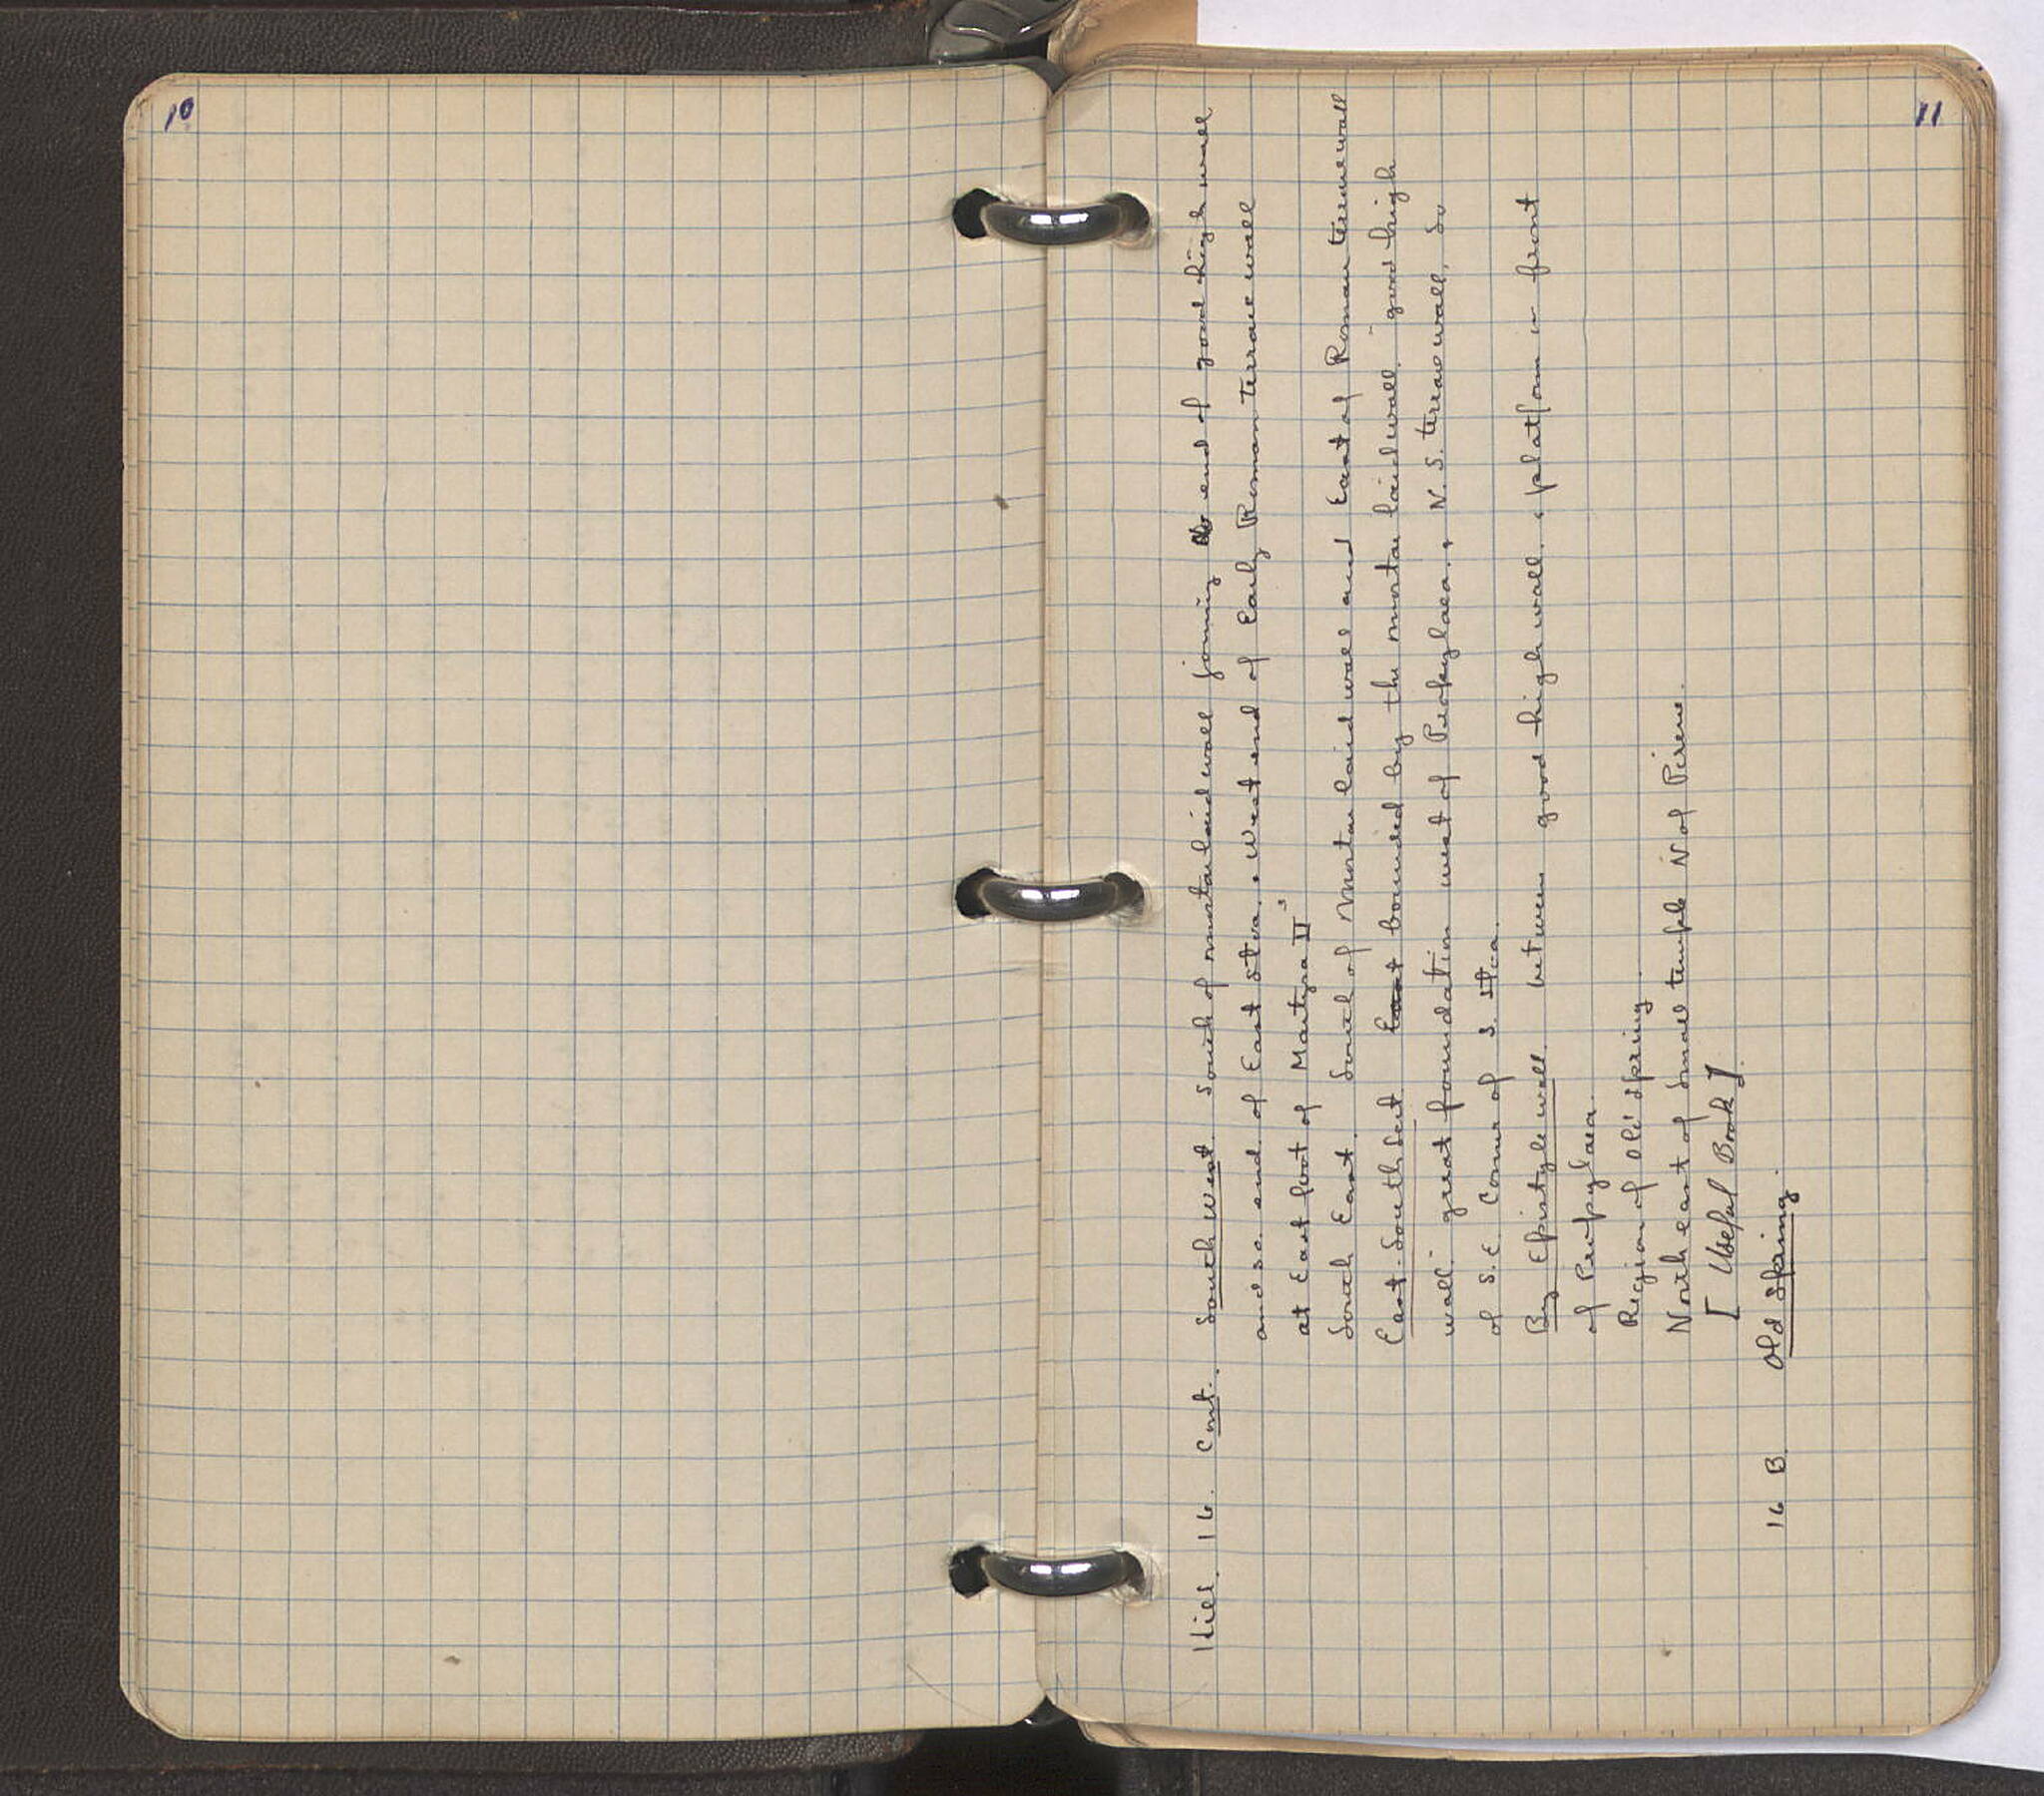 10
11
Hill. 16. Cont. South West. South of mortar laid wall joining end of good high wall
and s.e. end of East Stoa, & West end of Early Roman terrace wall
at East foot of Martyra II
South East. South of Mortar laid wall and East of Roman terrace wall
East-South East bounded by the mortar laid wall, "good high
wall" great foundation west of Peribylaea, & N.S. terrace wall, So
of S.E. Corner of S. Stoa.
By Epistyle wall. between good high wall, & platform in front
of Peribylaea.
Region of old spring.
North east of Small temple N of Pirene.
[Useful Book].
16 B. Old Spring.